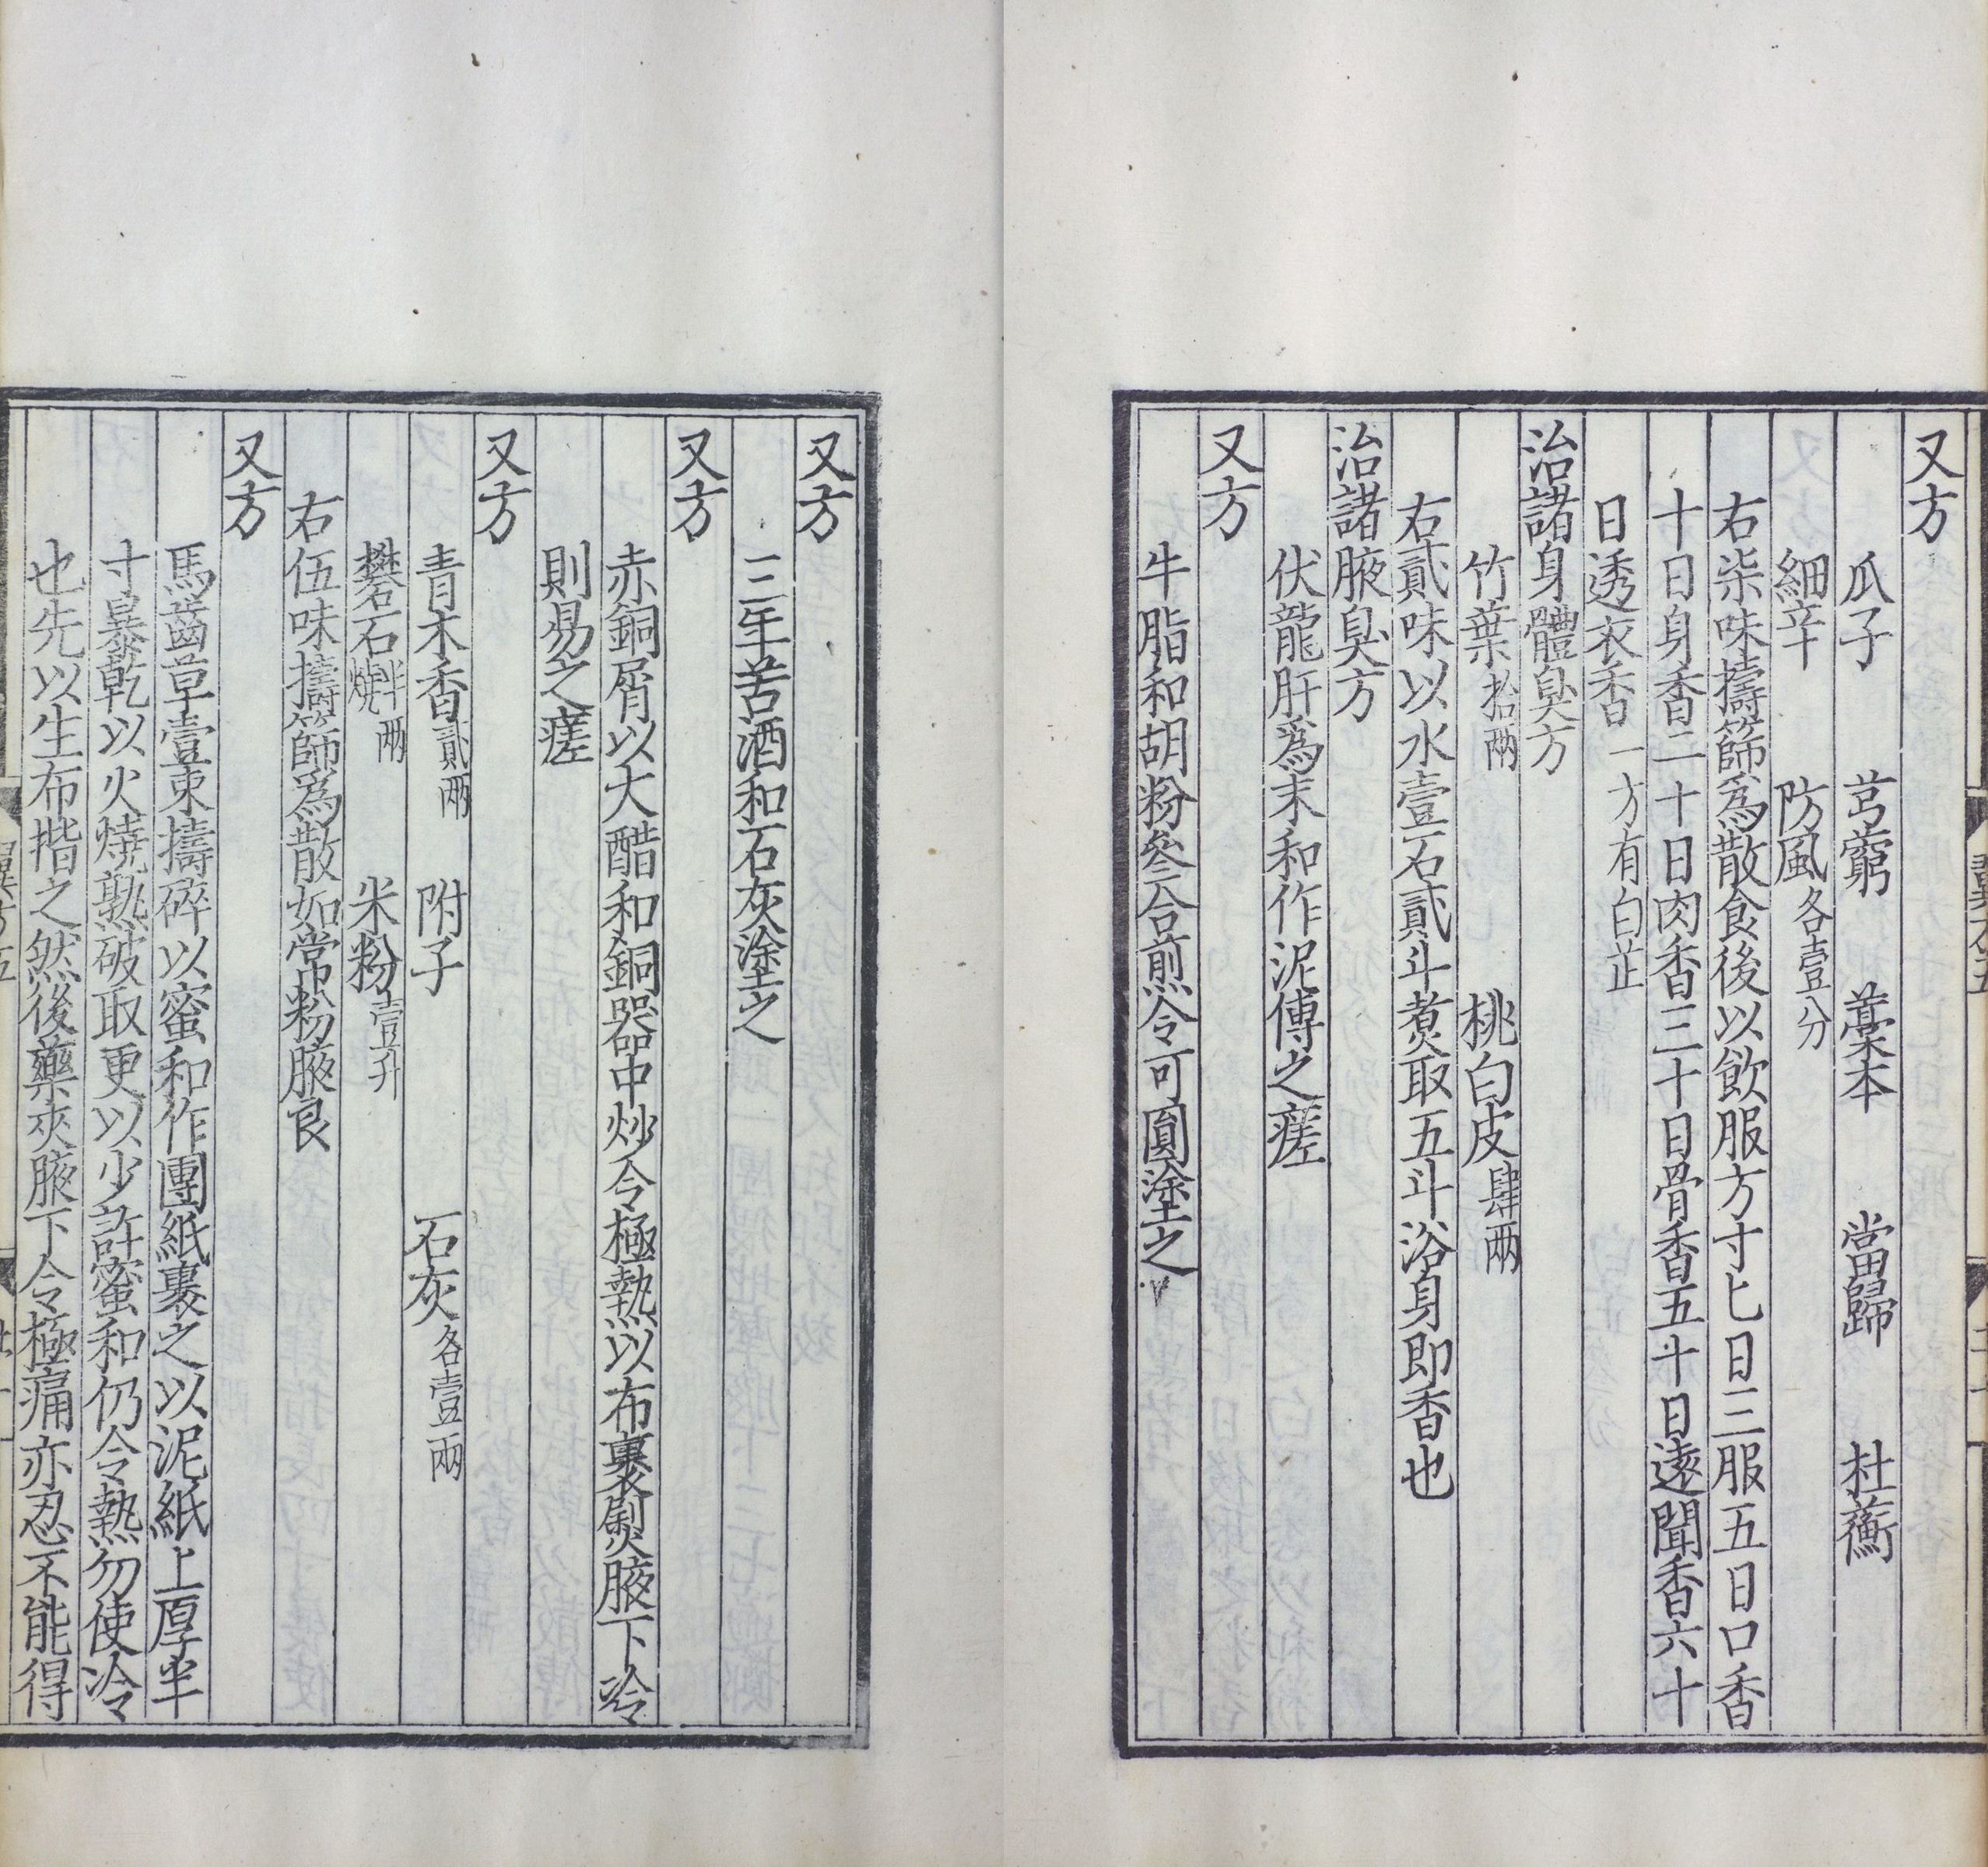 又方
瓜子 芎藭 藁本 當歸 杜蘅
細辛 防風各壹分
右柒味擣篩爲散食後以飲服方寸匕日三服五日口香
十日身香二十日肉香三十日骨香五十日遠聞香六十
日透衣香一方有白芷
治諸身體臭方
竹葉拾兩 桃白皮肆兩
右貳味以水壹石貳斗煮取五斗浴身即香也
治諸腋臭方
伏龍肝爲末和作泥傅之瘥
又方
牛脂和胡粉叄合煎令可圓塗之
又方
三年苦酒和石灰塗之
又方
赤銅屑以大醋和銅器中炒令極熱以布裹熨腋下冷
則易之瘥
又方
青木香貳兩 附子 石灰各壹兩
礬石半兩燒 米粉壹升
右伍味擣篩爲散如常粉腋良
又方
馬齒草壹束擣碎以蜜和作團紙裹之以泥紙上厚半
寸暴乾以火燒熟破取更以少許蜜和仍令熱勿使冷
也先以生布揩之然後藥夾腋下令極痛亦忍不能得